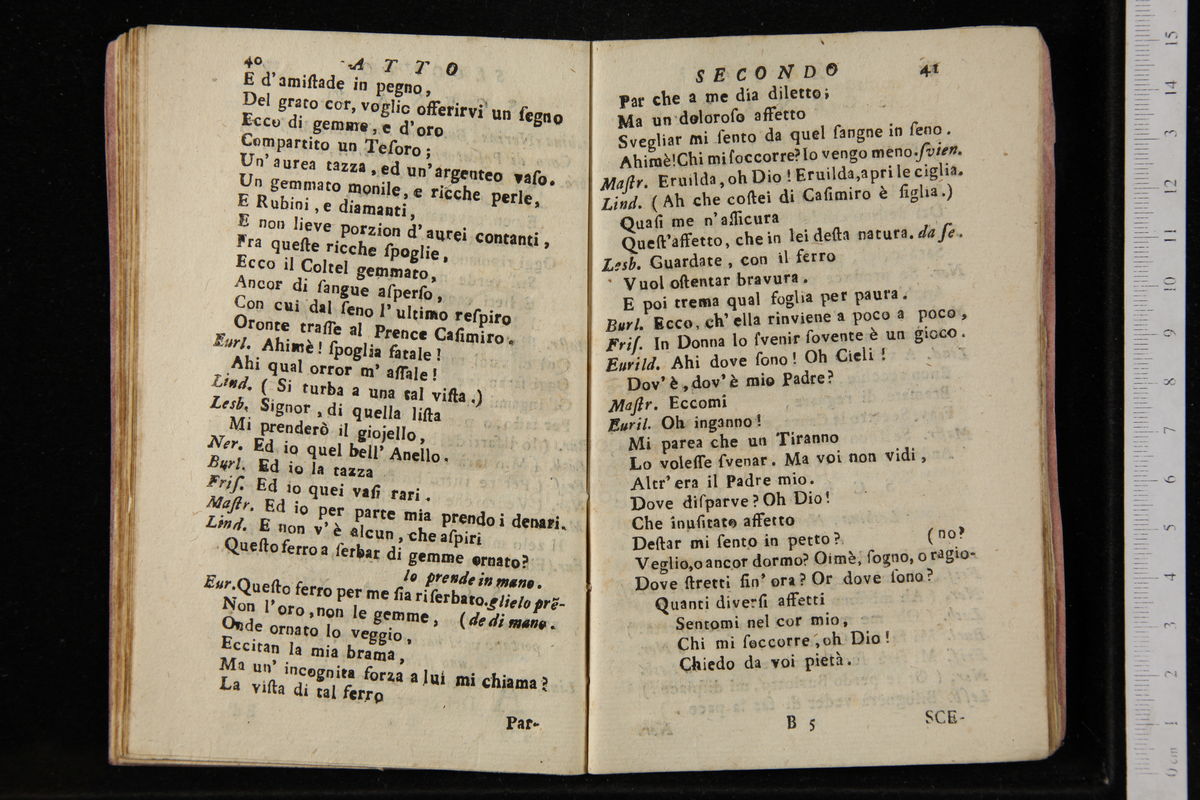 40 ATTO
E d'amiſtade in pegno,
Del grato cor, voglio offerirvi un ſegno
Ecco di gemme, e d'oro
Compartito un Teſoro;
Un'aurea tazza, ed un'argenteo vaſo.
Un gemmato monile, e ricche perle,
E Rubini, e diamanti,
E non lieve porzion d'aurei contanti,
Fra queſte ricche ſpoglie,
Ecco il Coltel gemmato,
Ancor di ſangue aſperſo,
Con cui dal ſeno l'ultimo reſpiro
Oronte traſſe al Prence Caſimiro.
Eurl. Ahimè! ſpoglia fatale!
Ahi qual orror m'aſſale!
Lind. (Si turba a una tal viſta.)
Lesb. Signor, di quella liſta
Mi prenderò il giojello,
Ner. Ed io quel bell'Anello.
Burl. Ed io la tazza
Friſ. Ed io quei vaſi rari.
Maſtr. Ed io per parte mia prendo i denari.
Lind. E non v'è alcun, che aſpiri
Queſto ferro a ſerbar di gemme ornato?
lo prende in mano.
Eur. Queſto ferro per me ſia riſerbato. glielo prẽ-
Non l'oro, non le gemme, (de di mano.
Onde ornato lo veggio,
Eccitan la mia brama,
Ma un'incognita forza a lui mi chiama?
La viſta di tal ferro
Par-
SECONDO 41
Par che a me dia diletto;
Ma un doloroſo affetto
Svegliar mi ſento da quel ſangne in ſeno.
Ahimè! Chi mi ſoccorre? Io vengo meno. ſvien.
Maſtr. Eruilda, oh Dio! Eruilda, apri le ciglia.
Lind. (Ah che coſtei di Caſimiro è figlia.)
Quaſi me n'aſſicura
Queſt'affetto, che in lei deſta natura. da ſe.
Lesb. Guardate, con il ferro
Vuol oſtentar bravura.
E poi trema qual foglia per paura.
Burl. Ecco, ch'ella rinviene a poco a poco,
Friſ. In Donna lo ſvenir ſovente è un gioco.
Eurild. Ahi dove ſono! Oh Cieli!
Dov'è, dov'è mio Padre?
Maſtr. Eccomi
Euril. Oh inganno!
Mi parea che un Tiranno
Lo voleſſe ſvenar. Ma voi non vidi,
Altr'era il Padre mio.
Dove diſparve? Oh Dio!
Che inuſitato affetto
Deſtar mi ſento in petto? (no?
Veglio, o ancor dormo? Oimè, ſogno, o ragio-
Dove ſtretti ſin'ora? Or dove ſono?
Quanti diverſi affetti
Sentomi nel cor mio,
Chi mi ſoccorre, oh Dio!
Chiedo da voi pietà.
B 5 SCE-
0 cm 1 2 3 4 5 6 7 8 9 10 11 12 13 14 15